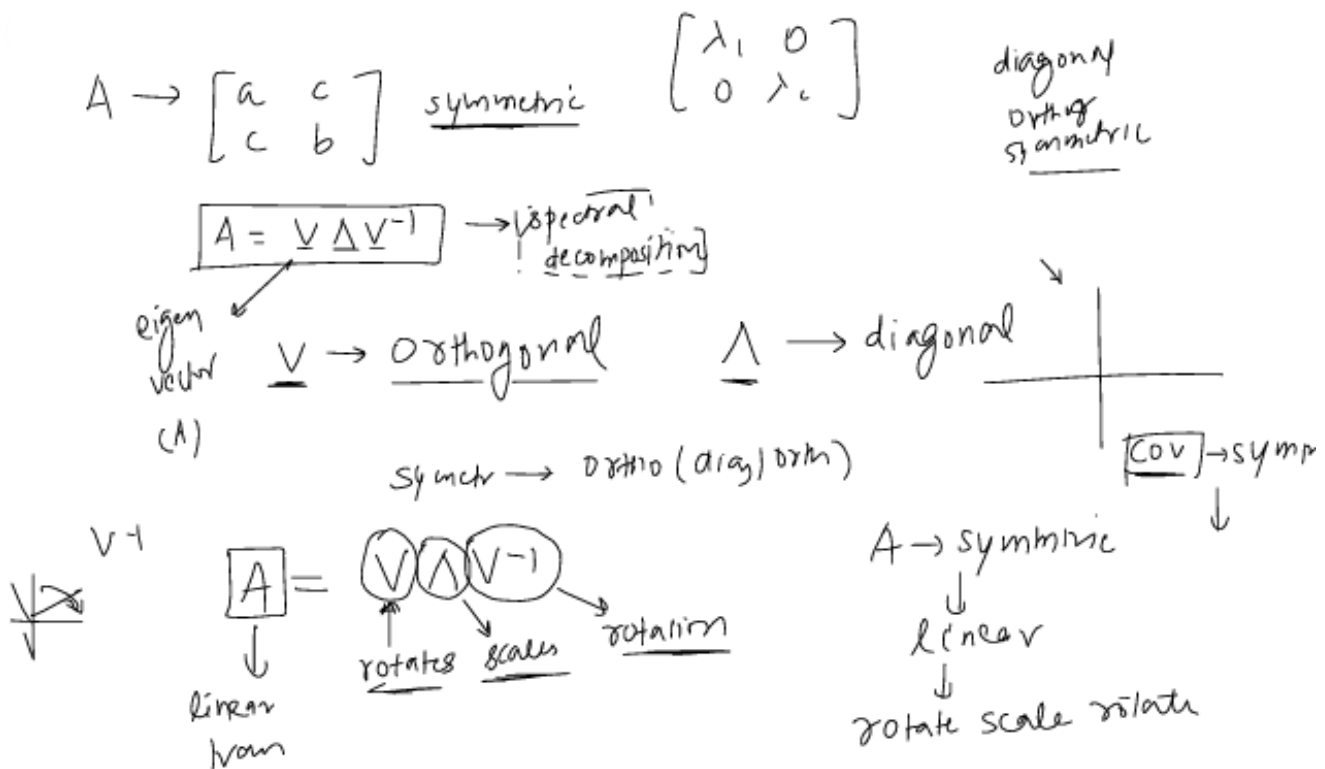 A → [a c
c b] symmetric
[λ₁ 0
0 λ꜀]
diagonal
orthog
symmetric
A = V Λ V⁻¹ → spectral
decomposition
eigen
vector
(A)
V → Orthogonal
Λ → diagonal
cov → symm
symetr → Ortho (diag/orth)
V⁻¹
A = V Λ V⁻¹
rotates scales rotation
linear
A → symmtric
↓
linear
↓
rotate scale rotate